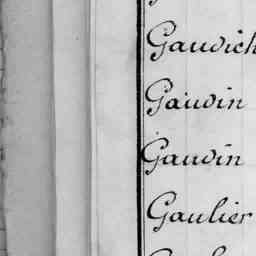 Gaudich
Gaudin
Gaudin
Gaulier